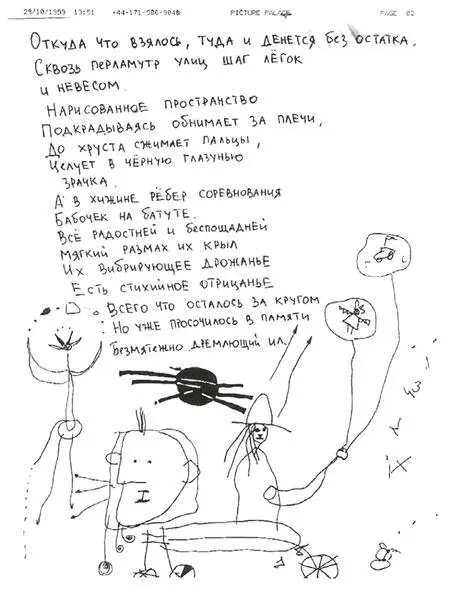 29/10/1999 13:51 +44-171-586-9048 PICTURE PALACE PAGE 02
Откуда что взялось, туда и денется без остатка.
Сквозь перламутр улиц шаг лёгок
и невесом.
Нарисованное пространство
Подкрадываясь обнимает за плечи,
До хруста сжимает пальцы,
Целует в чёрную глазунью
зрачка.
А в хижине рёбер соревнования
Бабочек на батуте.
Всё радостней и беспощадней
мягкий размах их крыл
Их вибрирующее дрожанье
Есть стихийное отрицанье
Всего что осталось за кругом
Но уже просочилось в памяти
Безмятежно дремлющий ил.